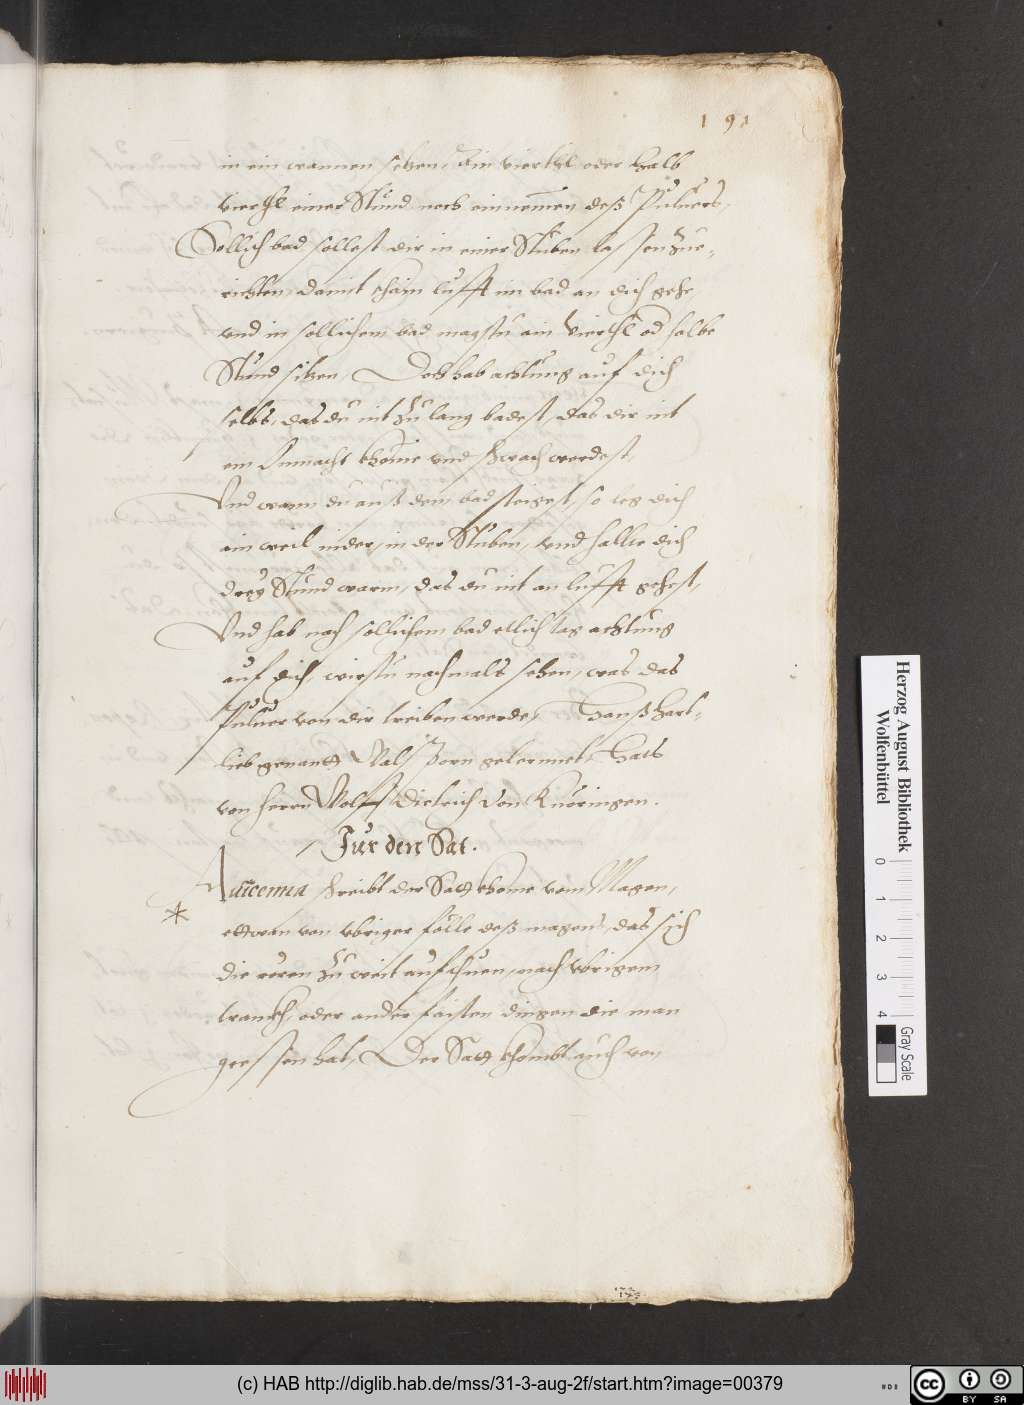 191
in ein wannen setzen, Ein viertl oder halb
viertl einer Stund noch einnemen deß Pulvers,
Sollich bad sollest dir in einer Stuben lassen zue-
richten, damit khain lufft im bad an dich gehe
vnd in sollichem bad magstu ain viertl od halbe
Stund sitzen, Doch hab achtung auf dich
selbs, das du nit zu lang badest, das dir nit
ein Onmacht khome vnd schwach werdest,
Vnd wann du auß dem bad steigest, so leg dich
ain weil nider, in der Stuben, vnd halte dich
drey Stund warm, das du nit an lufft gehest,
Vnd hab nach sollichem bad etlich tag achtung
auf dich, wirstu nachmals sehen, was das
Pulver von dir treiben werde, Hanß Hart-
lieb genant gelernnet, hats
von herrn Wolff Dietrich von Knöringen.
Fur den Sat.
* Auicenna schreibt der Satt khome vom Magen,
ettwan von vbriger fölle deß magens, das sich
die roren zu weit aufthuen, nach vbrigem
tranckh, oder ander faisten dingen die man
gessen hat, Der Satt khombt auch von
Herzog August Bibliothek
Wolfenbüttel
0 1 2 3 4
Gray Scale
(c) HAB http://diglib.hab.de/mss/31-3-aug-2f/start.htm?image=00379
cc BY SA